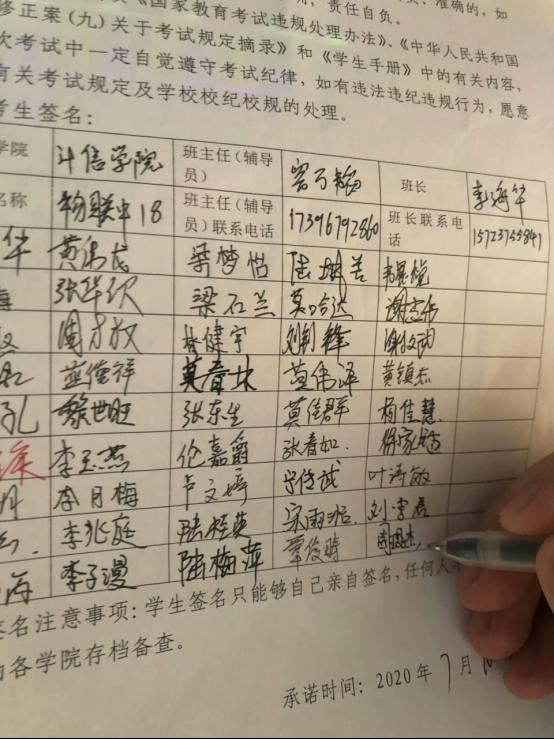 《国家教育考试违规处理办法》、《中华人民共和国
修正案（九）关于考试规定摘录》和《学生手册》中的有关内容，
次考试中一定自觉遵守考试纪律，如有违法违纪违规行为，愿意
有关考试规定及学校校纪校规的处理。
考生签名：
学院 计信学院 班主任（辅导员） 班长 李海华
名称 物联中18 班主任（辅导员）联系电话 17396792860 班长联系电话 15723755841
华 黄伟成 梁梦怡
海 张华欢 梁石兰 谢志伟
周才放 林健宇 刘钊锋
蓝俊祥 莫春林 莫伟泽 黄镇杰
孔 黎世旺 张东生 莫佳群 杨佳慧
李玉燕 伦嘉爵 张春如
月 李月梅 卢文婷 宁传斌 叶诗敏
李兆庭 陆桂英 宋雨珊 刘李君
海 李子漫 陆梅萍 覃俊晴
签名注意事项：学生签名只能够自己亲自签名，任何人不
由各学院存档备查。
承诺时间：2020年7月